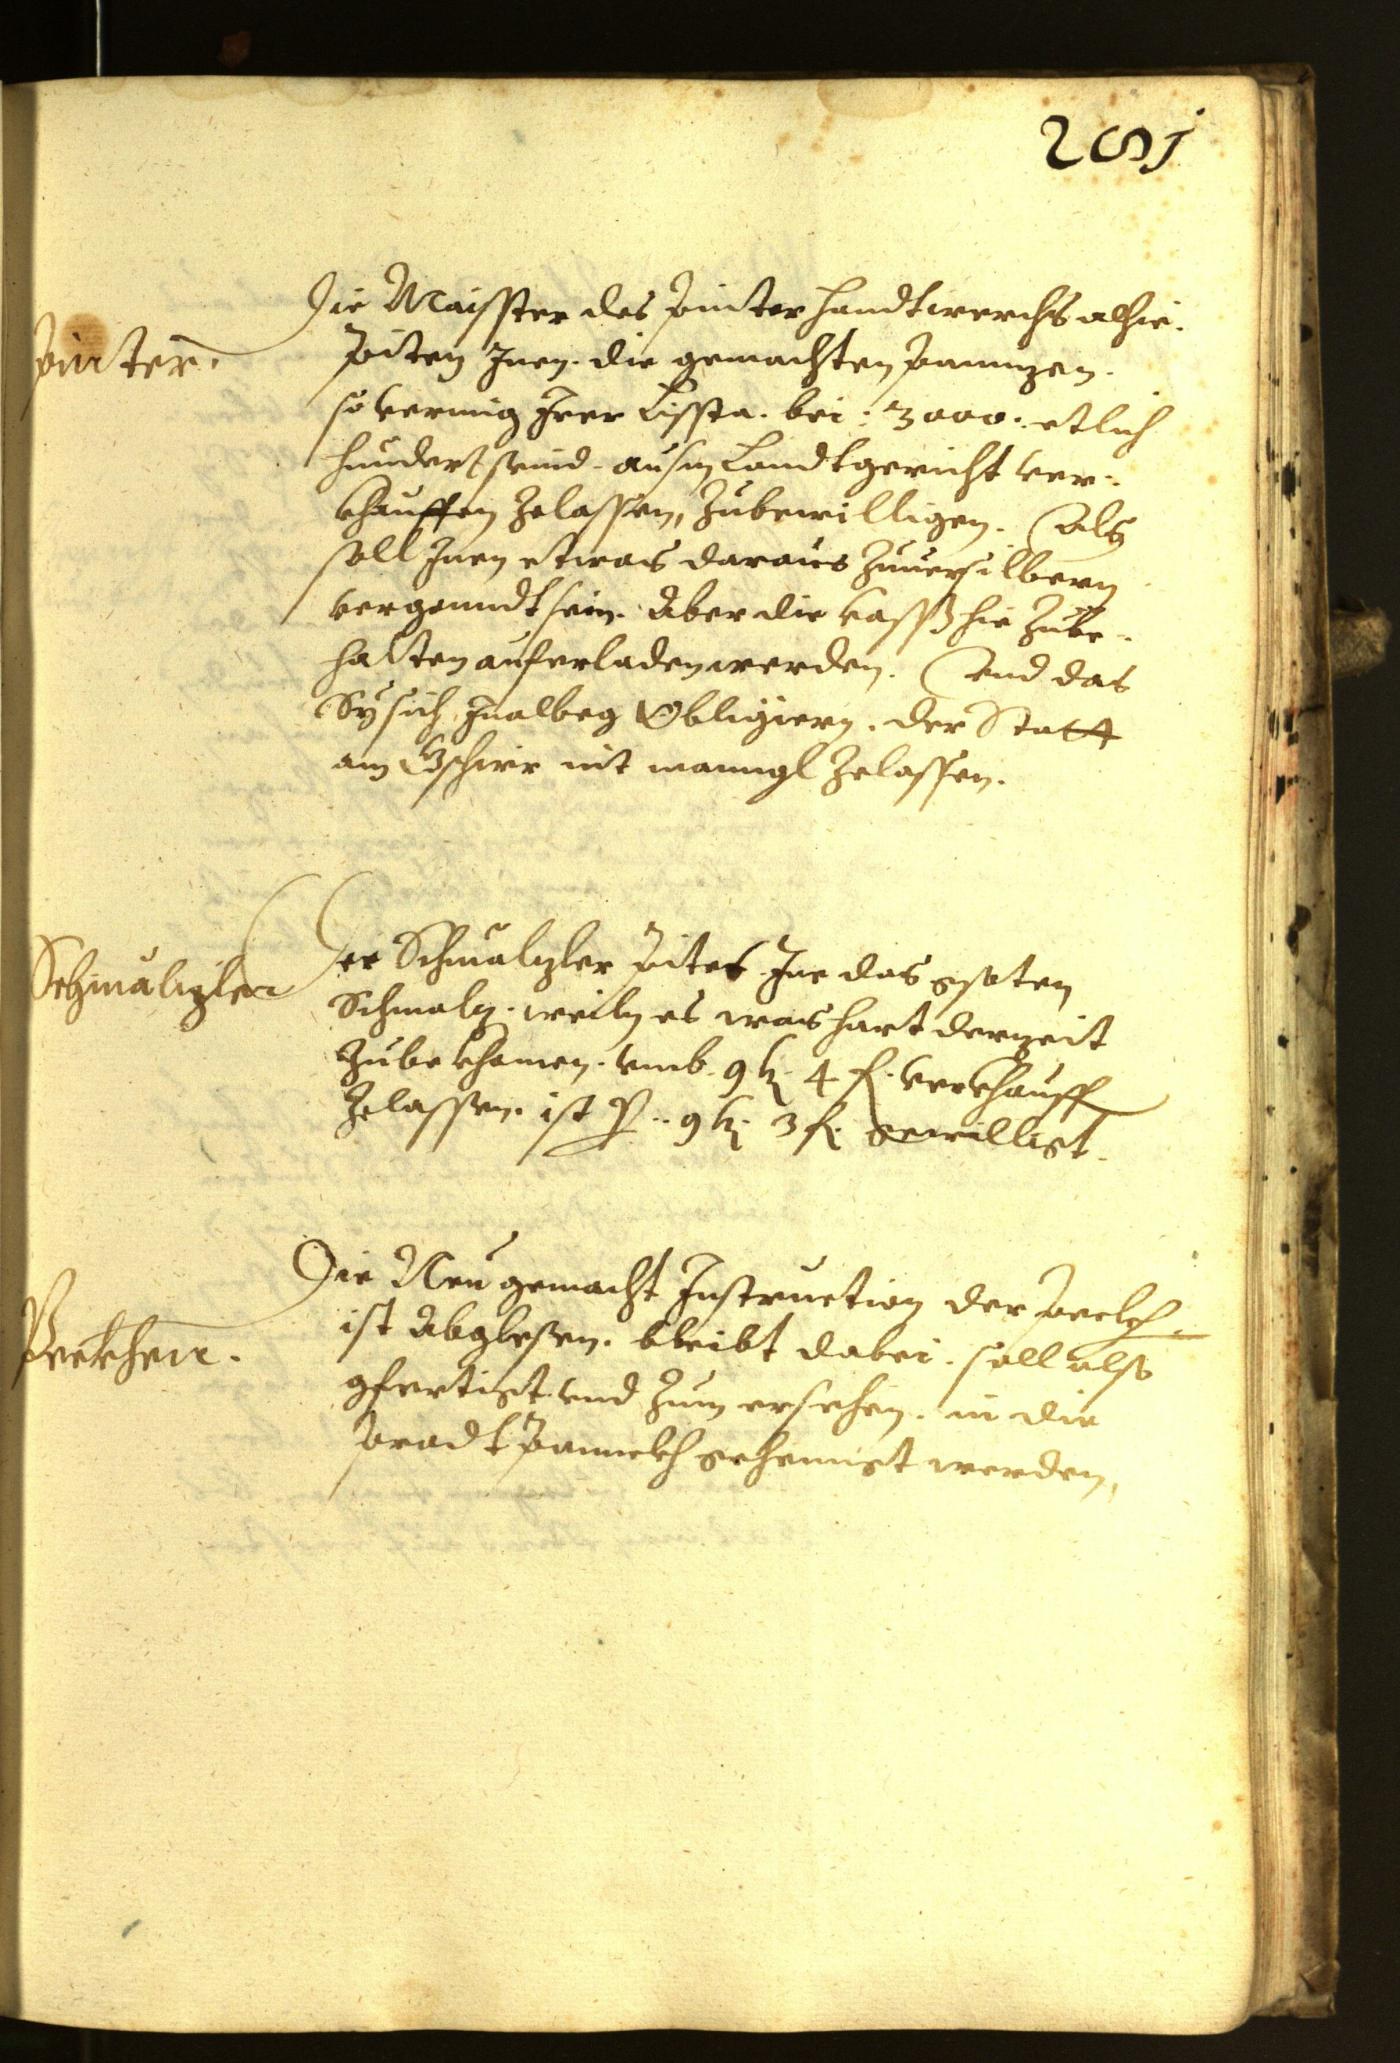 281
Pinter.
Die Maisster des Pinter Handtwerchs alhie.
Piten Inen. die gemachten Pannzen.
so vermüg Irer Lissta. bei: 3000: etlich
hundert seind. ausm Landtgericht ver-
khauffen zelassen, zubewilligen. Als
soll Inen etwas daraus zuuersilbern
vergonndt sein. Aber die vasß hie zübe-
halten auferladen werden. Vnd das
Sy sich Inalbeg Obligiern. der Statt
am Gschirr nit manngl zelassen.
Schmalzler
Der Schmalzler Pitet Ime das gsoten
Schmalz. weiln es was hart derzeit
zubekhomen. vmb. 9 k. 4 f. verkhauff
zelassen. ist P. 9 k. 3 f. gewilligt.
Pekhen.
Die Neu gemacht Instruction der Pekh.
ist Abglesen. bleibt dabei. soll also
gfertigt vnd zum ersehen. in die
Prodt Pannckh gehenngt werden,